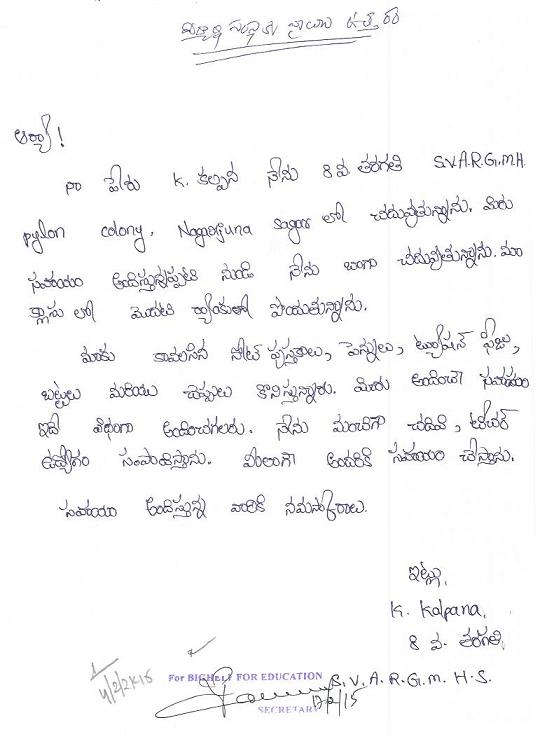 విద్యార్థి సంస్థకు వ్రాయు ఉత్తరం
ఆర్యా!
నా పేరు K. కల్పన నేను 8 వ తరగతి S.V.A.R.G.M.H.
pylon colony, Nagarjuna sagar లో చదువుతున్నాను. మీరు
సహాయం అందిస్తున్నప్పటి నుండి నేను బాగా చదువుతున్నాను. మా
క్లాసు లో మొదటి ర్యాంకులో పోయుతున్నాను.
మాకు కావలసిన నోట్ పుస్తకాలు, పెన్నులు, ట్యూషన్ ఫీజు,
బట్టలు మరియు చెప్పులు కొనిస్తున్నారు. మీరు అందించే సహాయం
ఇదే విధంగా అందించగలరు. నేను మంచిగా చదివి, టీచర్
ఉద్యోగం సంపాదిస్తాను. మీలాగా అందరికి సహాయం చేస్తాను.
సహాయం అందిస్తున్న వారికి నమస్కారాలు.
ఇట్లు,
K. Kalpana,
8 వ. తరగతి,
S.V.A.R.G.M.H.S.
For BIGHELP FOR EDUCATION
SECRETARY